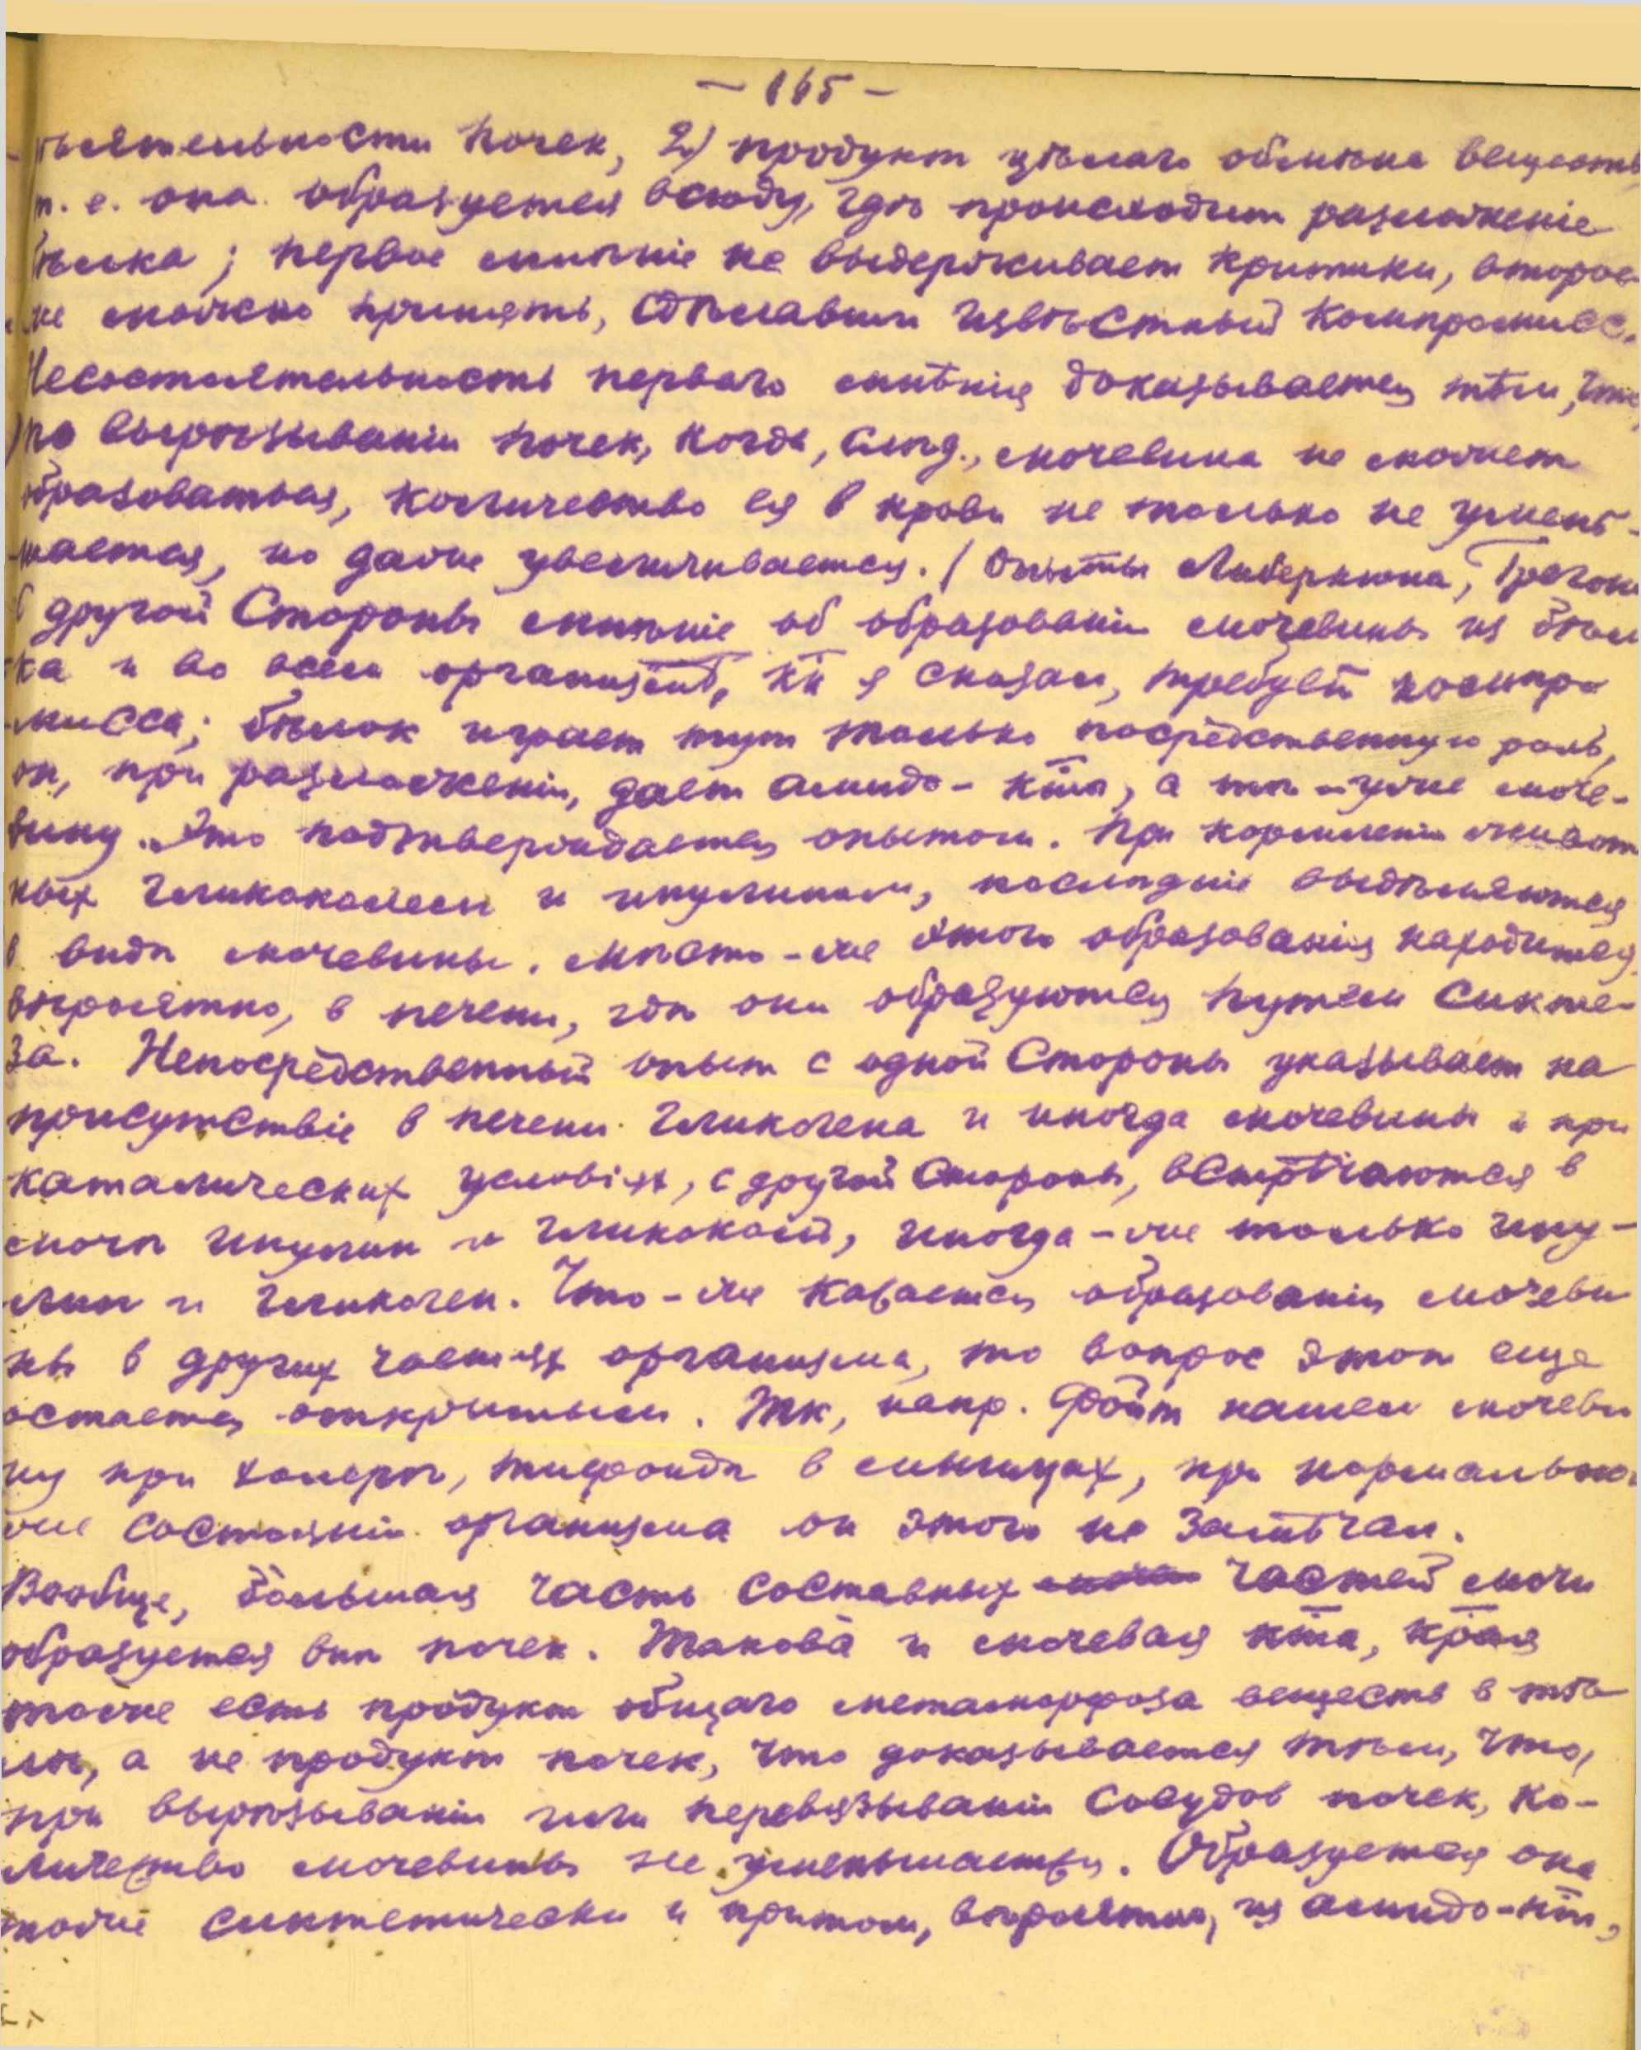 — 165 —
дѣятельности почек, 2) продукт цѣлаго обмѣна веществ
т. е. она образуется всюду, гдѣ происходит разложеніе
бѣлка; первое мнѣніе не выдерживает критики, второе
же можно принять, сдѣлавши извѣстный компромисс.
Несостоятельность перваго мнѣнія доказывается тѣм, что,
по вырѣзываніи почек, когда, слѣд., мочевина не может
образоваться, количество ея в крови не только не умень-
шается, но даже увеличивается. / Опыты Либеркюна,
С другой стороны мнѣніе об образованіи мочевины из бѣл
ка и во всем организмѣ, кк я сказал, требует компро
мисса; бѣлок играет тут только посредственную роль,
он, при разложеніи, дает амидо-кты, а тѣ-уже моче-
вину. Это подтверждается опытом. При кормленіи живот
ных гликоколем и инулином, послѣдніе выдѣляются
в видѣ мочевины. Мѣсто-же этого образованія находится,
вѣроятно, в печени, гдѣ они образуются путем синте-
за. Непосредственный опыт с одной стороны указывает на
присутствіе в печени гликогена и иногда мочевины и при
каталических условіях, с другой стороны, встрѣчаются в
мочѣ инулин и гликоколь, иногда-же только ину-
лин и гликоген. Что-же касается образованія мочеви
ны в других частях организма, то вопрос этот еще
остается открытым. Тк, напр. Фойт нашел мочеви
ну при холерѣ, тифоидѣ в мышцах, при нормально
же состояніи организма он этого не замѣчал.
Вообще, большая часть составных частей мочи
образуется внѣ почек. Такова и мочевая кта, края
тоже есть продукт общаго метаморфоза веществ в тѣ
лѣ, а не продукт почек, что доказывается тѣм, что,
при вырѣзываніи или перевязываніи сосудов почек, ко-
личество мочевины не уменьшается. Образуется она
тоже синтетически и притом, вѣроятно, из амидо-кт,